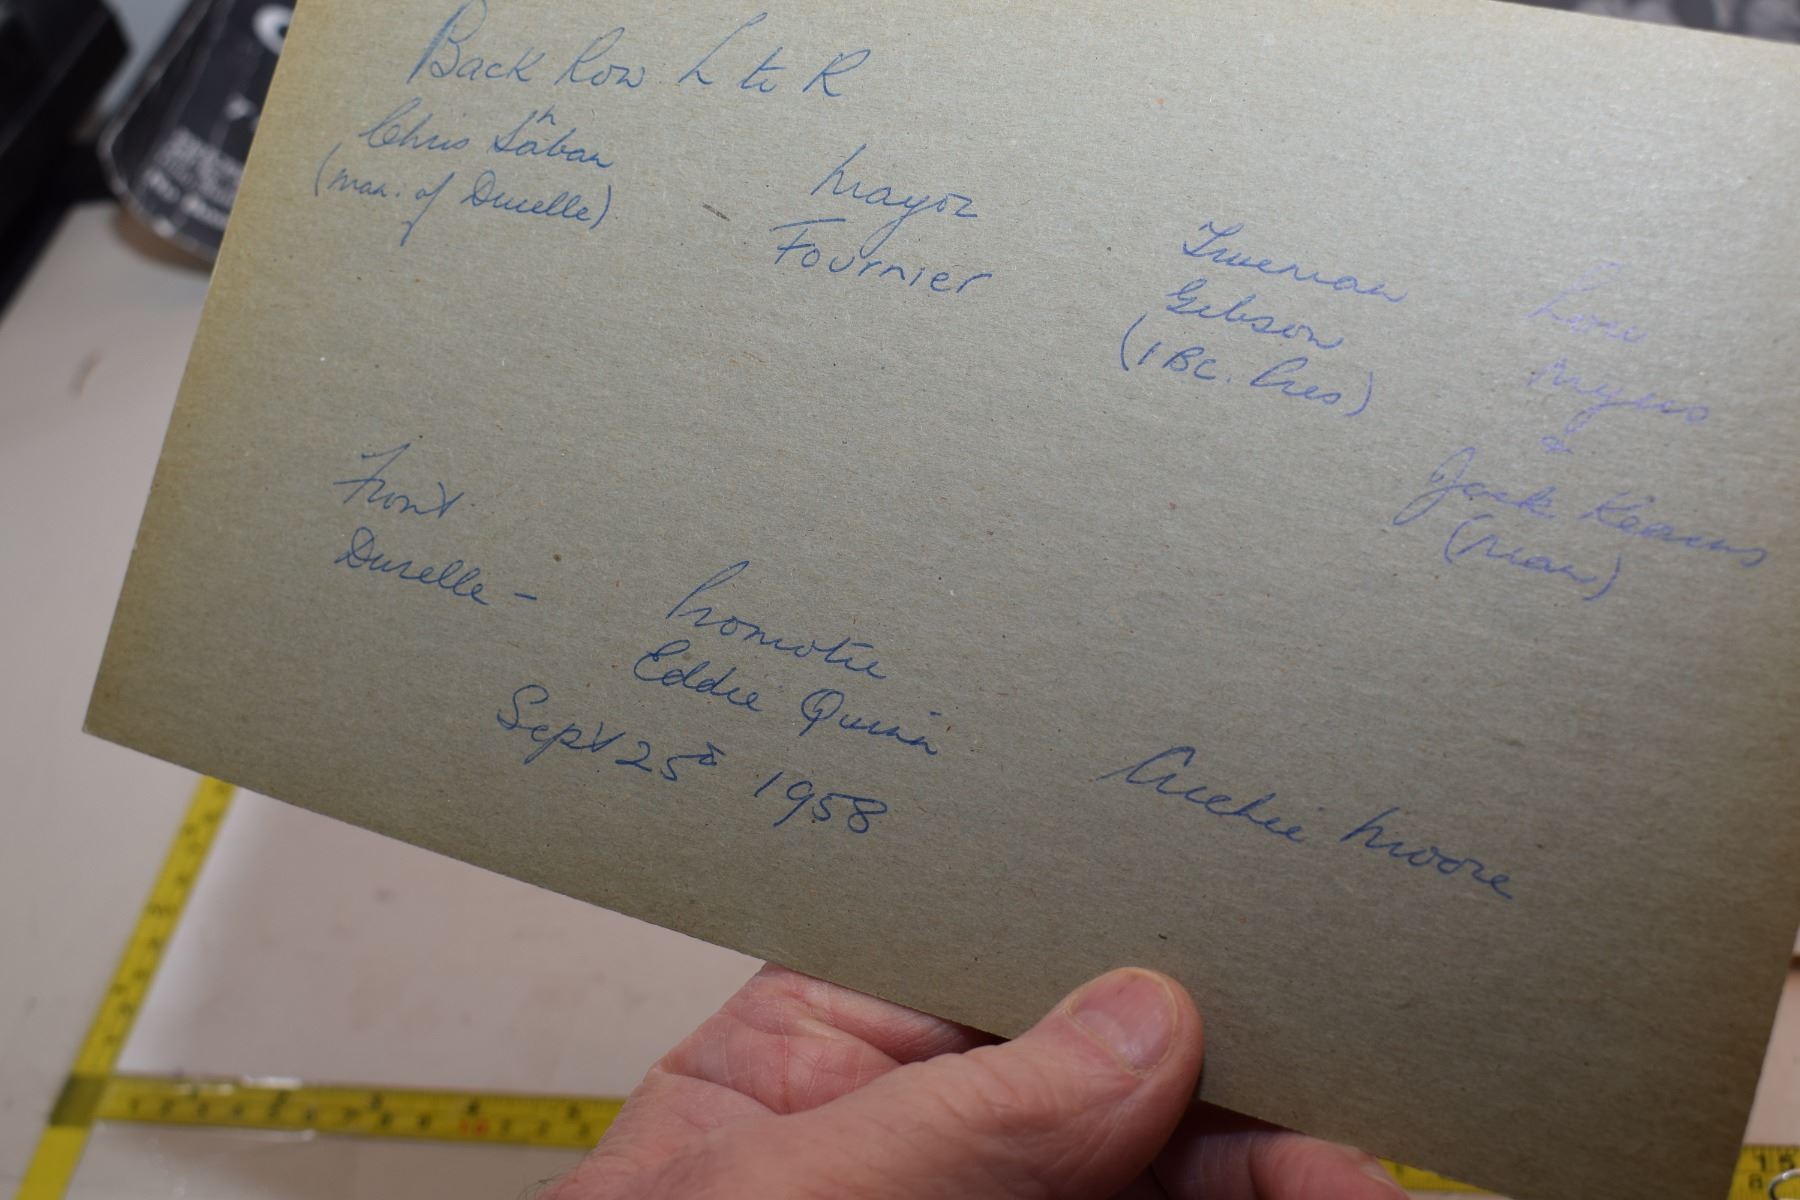 Back Row L to R
Chris Shaban
(man. of Durelle)
Mayor
Fournier
Trueman
Gibson
(IBC. Pres)
Lou
Myers
&
Jack Kearns
(man)
Front
Durelle -
Promoter
Eddie Quinn
Archie Moore
Sept 25th 1958